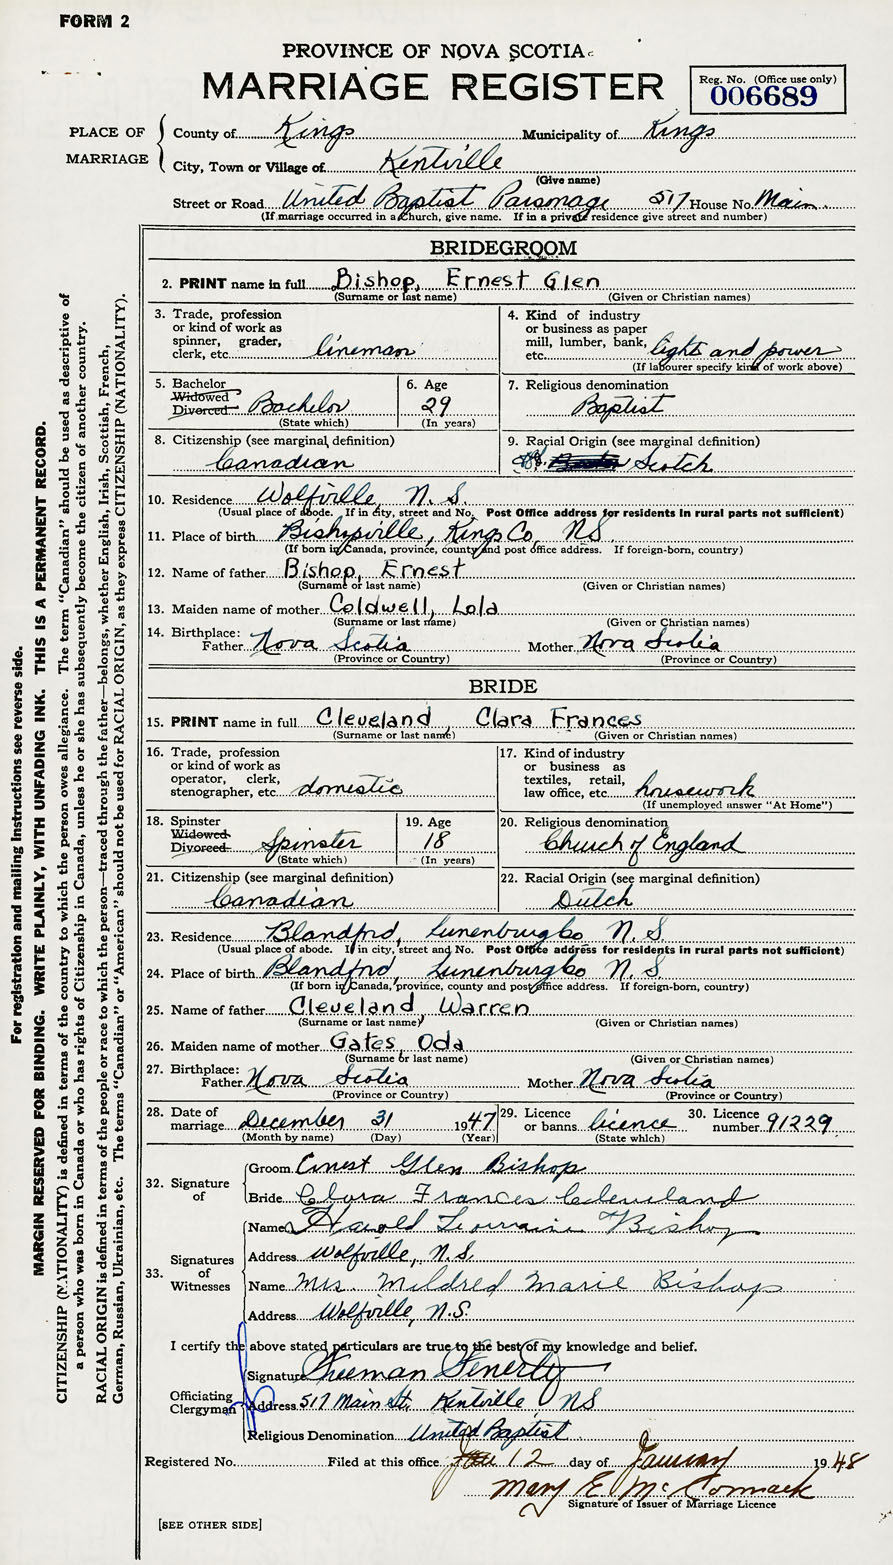 FORM 2
PROVINCE OF NOVA SCOTIA
MARRIAGE REGISTER
Reg. No. (Office use only)
006689
PLACE OF MARRIAGE
County of Kings Municipality of Kings
City, Town or Village of Kentville
(Give name)
Street or Road United Baptist Parsonage 517 House No. Main
(If marriage occurred in a church, give name. If in a private residence give street and number)
BRIDEGROOM
2. PRINT name in full Bishop, Ernest Glen
(Surname or last name) (Given or Christian names)
3. Trade, profession or kind of work as spinner, grader, clerk, etc. lineman
4. Kind of industry or business as paper mill, lumber, bank, etc. light and power
(If labourer specify kind of work above)
5. Bachelor Widowed Divorced Bachelor
(State which)
6. Age 29
(In years)
7. Religious denomination
Baptist
8. Citizenship (see marginal definition)
Canadian
9. Racial Origin (see marginal definition)
Scotch
10. Residence Wolfville, N. S.
(Usual place of abode. If in city, street and No. Post Office address for residents in rural parts not sufficient)
11. Place of birth Bishopville, Kings Co, NS.
(If born in Canada, province, county and post office address. If foreign-born, country)
12. Name of father Bishop, Ernest
(Surname or last name) (Given or Christian names)
13. Maiden name of mother Coldwell, Lola
(Surname or last name) (Given or Christian names)
14. Birthplace:
Father Nova Scotia Mother Nova Scotia
(Province or Country) (Province or Country)
BRIDE
15. PRINT name in full Cleveland, Clara Frances
(Surname or last name) (Given or Christian names)
16. Trade, profession or kind of work as operator, clerk, stenographer, etc. domestic
17. Kind of industry or business as textiles, retail, law office, etc. housework
(If unemployed answer "At Home")
18. Spinster Widowed Divorced Spinster
(State which)
19. Age 18
(In years)
20. Religious denomination
Church of England
21. Citizenship (see marginal definition)
Canadian
22. Racial Origin (see marginal definition)
Dutch
23. Residence Blandford, Lunenburg Co N. S
(Usual place of abode. If in city, street and No. Post Office address for residents in rural parts not sufficient)
24. Place of birth Blandford, Lunenburg Co N. S
(If born in Canada, province, county and post office address. If foreign-born, country)
25. Name of father Cleveland, Warren
(Surname or last name) (Given or Christian names)
26. Maiden name of mother Gates, Oda
(Surname or last name) (Given or Christian names)
27. Birthplace:
Father Nova Scotia Mother Nova Scotia
(Province or Country) (Province or Country)
28. Date of marriage December 31 1947
(Month by name) (Day) (Year)
29. Licence or banns licence
(State which)
30. Licence number 91229
32. Signature of
Groom Ernest Glen Bishop
Bride Clara Frances Cleveland
33. Signatures of Witnesses
Name Harold Lorraine Bishop
Address Wolfville, N.S.
Name Mrs. Mildred Marie Bishop
Address Wolfville, N.S.
I certify the above stated particulars are true to the best of my knowledge and belief.
Officiating Clergyman
Signature Freeman Fenerty
Address 517 Main St. Kentville NS
Religious Denomination United Baptist
Registered No. Filed at this office 12 day of January 1948
Mary E McCormack
Signature of Issuer of Marriage Licence
[SEE OTHER SIDE]
For registration and mailing instructions see reverse side.
MARGIN RESERVED FOR BINDING. WRITE PLAINLY, WITH UNFADING INK. THIS IS A PERMANENT RECORD.
CITIZENSHIP (NATIONALITY) is defined in terms of the country to which the person owes allegiance. The term "Canadian" should be used as descriptive of
a person who was born in Canada or who has rights of Citizenship in Canada, unless he or she has subsequently become the citizen of another country.
RACIAL ORIGIN is defined in terms of the people or race to which the person—traced through the father—belongs, whether English, Irish, Scottish, French,
German, Russian, Ukrainian, etc. The terms "Canadian" or "American" should not be used for RACIAL ORIGIN, as they express CITIZENSHIP (NATIONALITY).